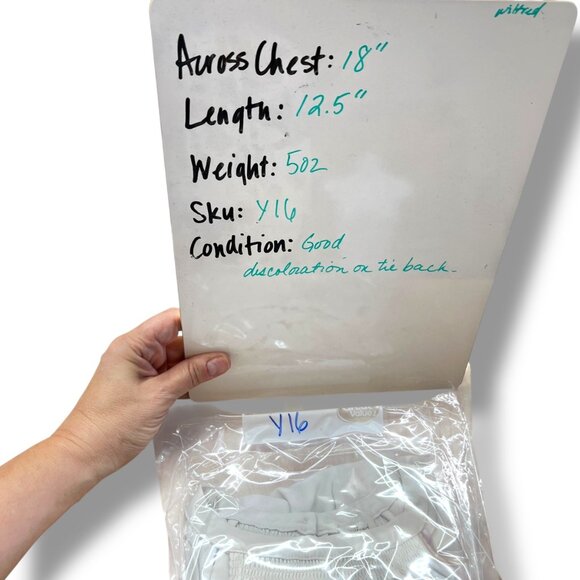 wilfred.
Across Chest: 18"
Length: 12.5"
Weight: 5oz
Sku: Y16
Condition: Good
discoloration on tie back.
Y16
Value